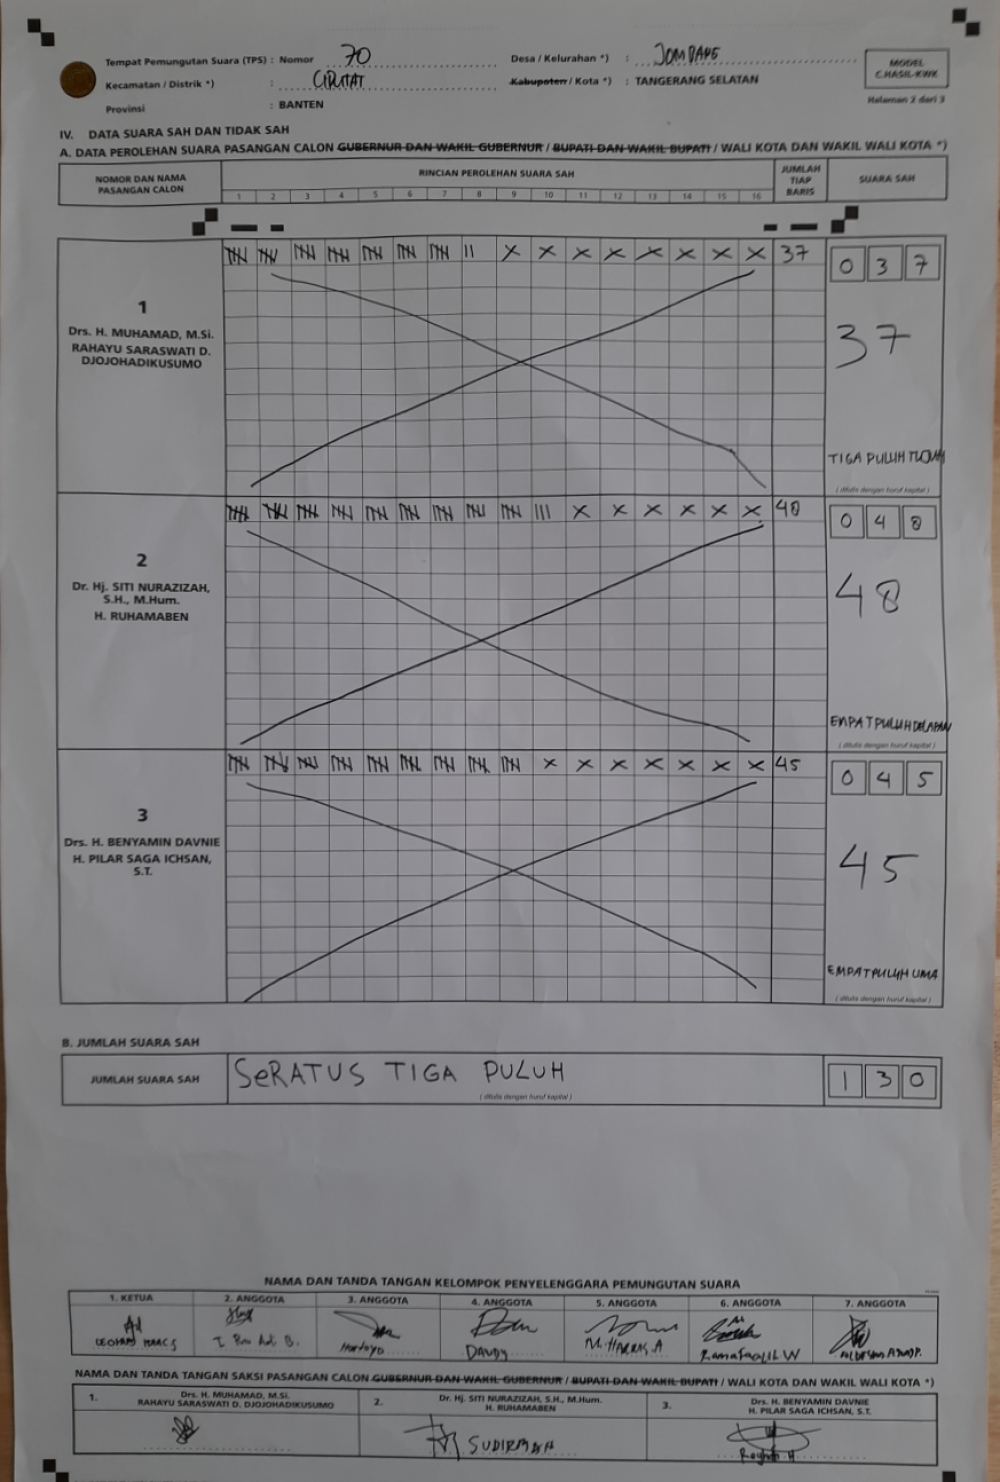 Tempat Pemungutan Suara (TPS) : Nomor 70 Desa / Kelurahan *) : JOMBANG
MODEL
C.HASIL-KWK
Kecamatan / Distrik *) : CIPUTAT Kabupaten / Kota *) : TANGERANG SELATAN
Provinsi : BANTEN
Halaman 2 dari 3
IV. DATA SUARA SAH DAN TIDAK SAH
A. DATA PEROLEHAN SUARA PASANGAN CALON GUBERNUR DAN WAKIL GUBERNUR / BUPATI DAN WAKIL BUPATI / WALI KOTA DAN WAKIL WALI KOTA *)
NOMOR DAN NAMA
PASANGAN CALON
RINCIAN PEROLEHAN SUARA SAH
1 2 3 4 5 6 7 8 9 10 11 12 13 14 15 16
JUMLAH
TIAP
BARIS
SUARA SAH
1
Drs. H. MUHAMAD, M.Si.
RAHAYU SARASWATI D.
DJOJOHADIKUSUMO
X X X X X X X X 37
0 3 7
37
TIGA PULUH TUJUH
(ditulis dengan huruf kapital)
2
Dr. Hj. SITI NURAZIZAH,
S.H., M.Hum.
H. RUHAMABEN
X X X X X X 48
0 4 8
48
EMPAT PULUH DELAPAN
(ditulis dengan huruf kapital)
3
Drs. H. BENYAMIN DAVNIE
H. PILAR SAGA ICHSAN,
S.T.
X X X X X X X 45
0 4 5
45
EMPAT PULUH LIMA
(ditulis dengan huruf kapital)
B. JUMLAH SUARA SAH
JUMLAH SUARA SAH SeRATUS TIGA PULUH 1 3 0
(ditulis dengan huruf kapital)
NAMA DAN TANDA TANGAN KELOMPOK PENYELENGGARA PEMUNGUTAN SUARA
1. KETUA 2. ANGGOTA 3. ANGGOTA 4. ANGGOTA 5. ANGGOTA 6. ANGGOTA 7. ANGGOTA
Hartoyo DANDY M. HARRIS.A
NAMA DAN TANDA TANGAN SAKSI PASANGAN CALON GUBERNUR DAN WAKIL GUBERNUR / BUPATI DAN WAKIL BUPATI / WALI KOTA DAN WAKIL WALI KOTA *)
1. Drs. H. MUHAMAD, M.Si.
RAHAYU SARASWATI D. DJOJOHADIKUSUMO
2. Dr. Hj. SITI NURAZIZAH, S.H., M.Hum.
H. RUHAMABEN
3. Drs. H. BENYAMIN DAVNIE
H. PILAR SAGA ICHSAN, S.T.
SUDIRMAN